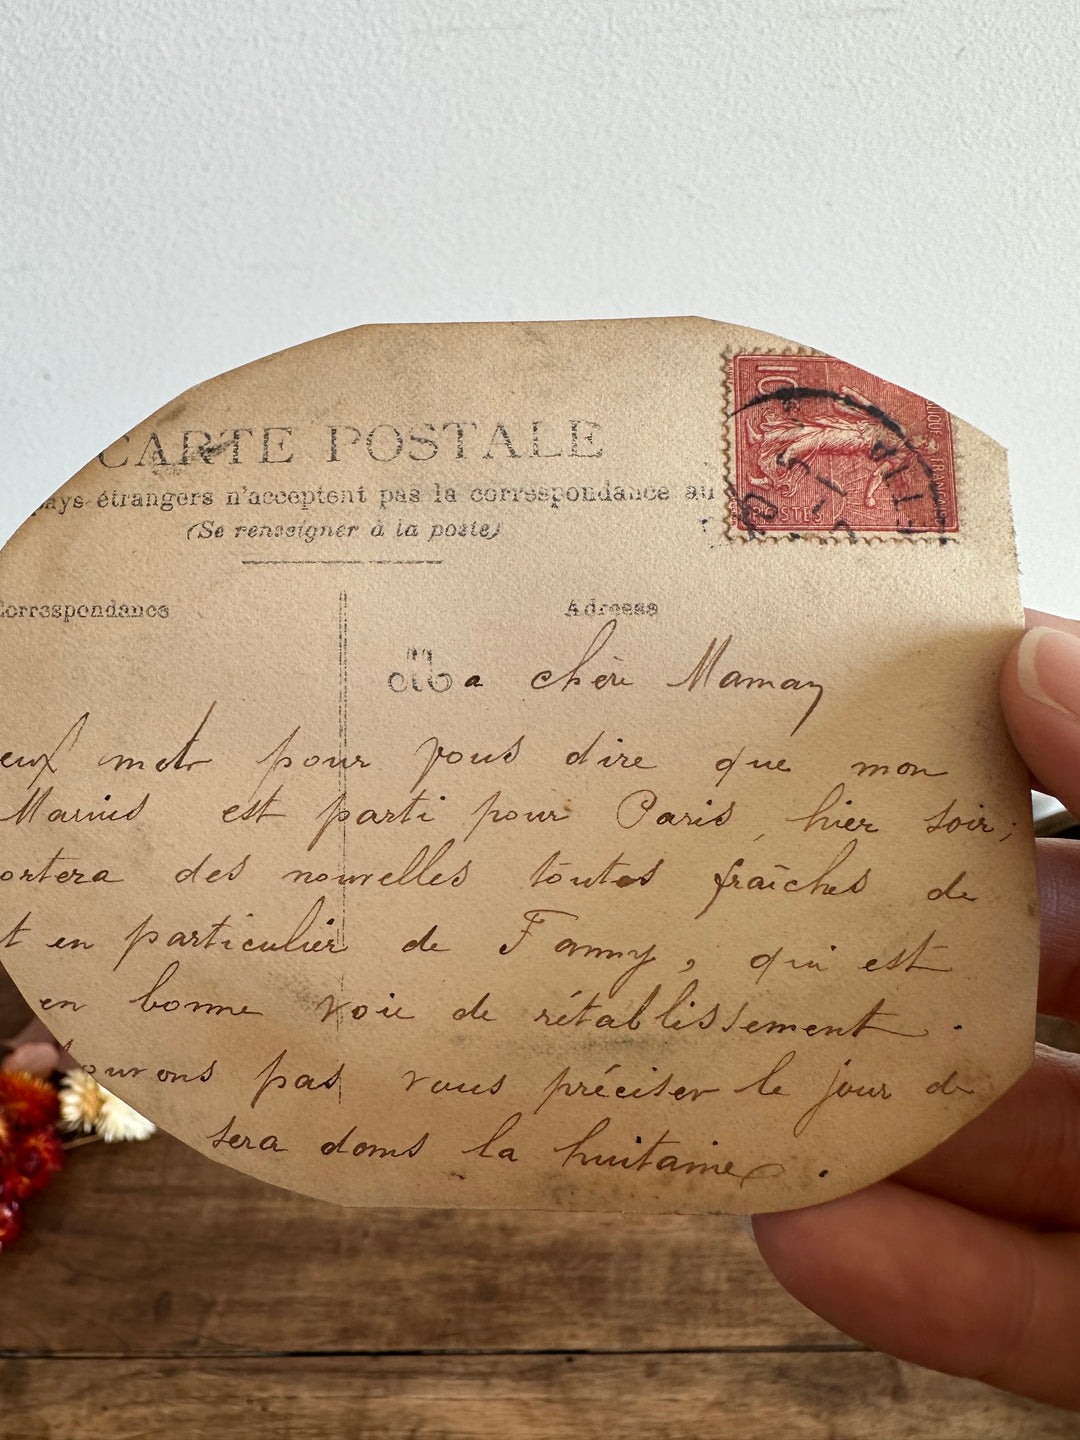 CARTE POSTALE
pays étrangers n'acceptent pas la correspondance au
(Se renseigner à la poste)
Correspondance
Adresse
10
POSTES
Ma chère Maman
euf mots pour vous dire que mon
Marius est parti pour Paris, hier soir;
ortera des nouvelles toutes fraîches de
t en particulier de Fanny, qui est
en bonne voie de rétablissement.
ouvons pas vous préciser le jour de
sera dans la huitaine.